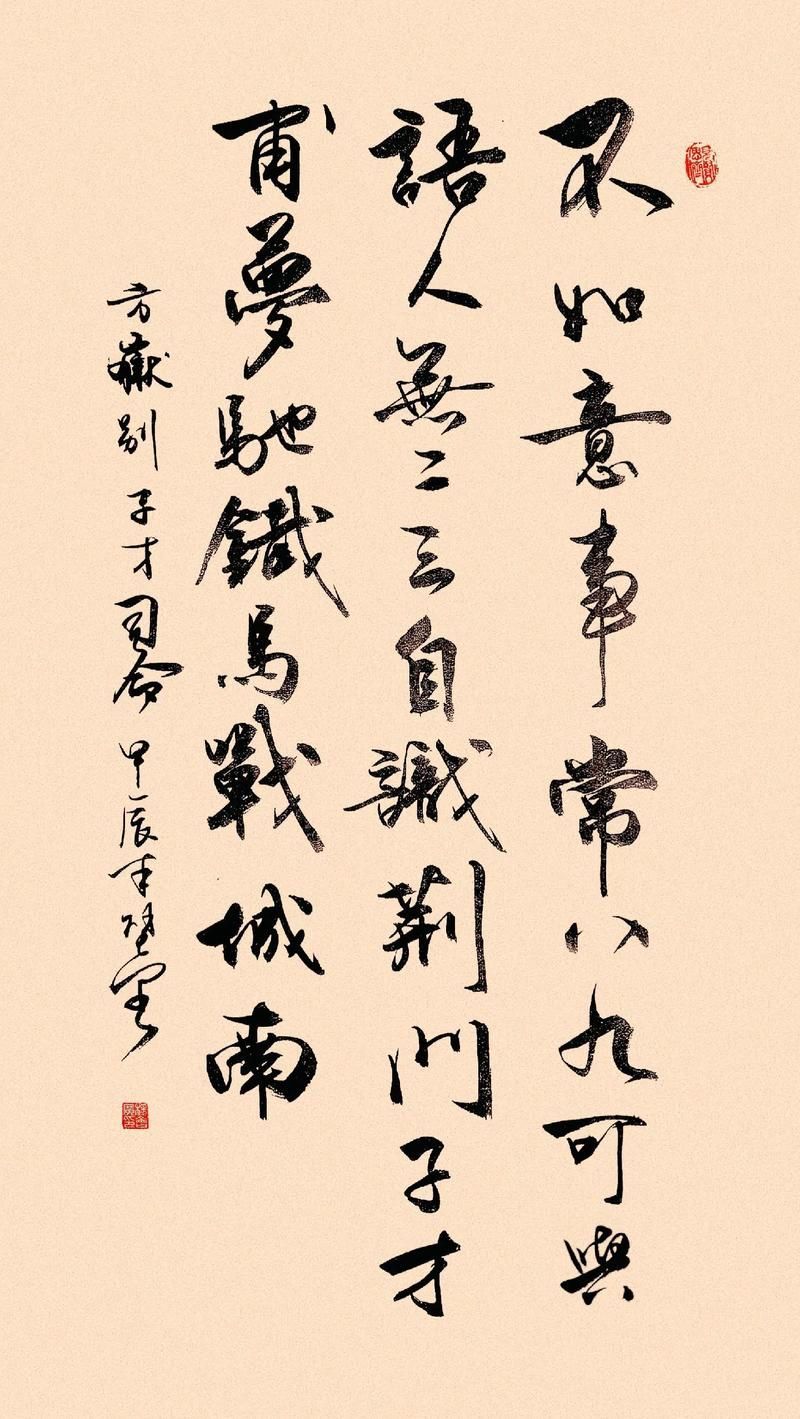 不如意事常八九可與
語人無二三自識荊門子才
甫夢馳鐵馬戰城南
方嶽別子才司令甲辰年